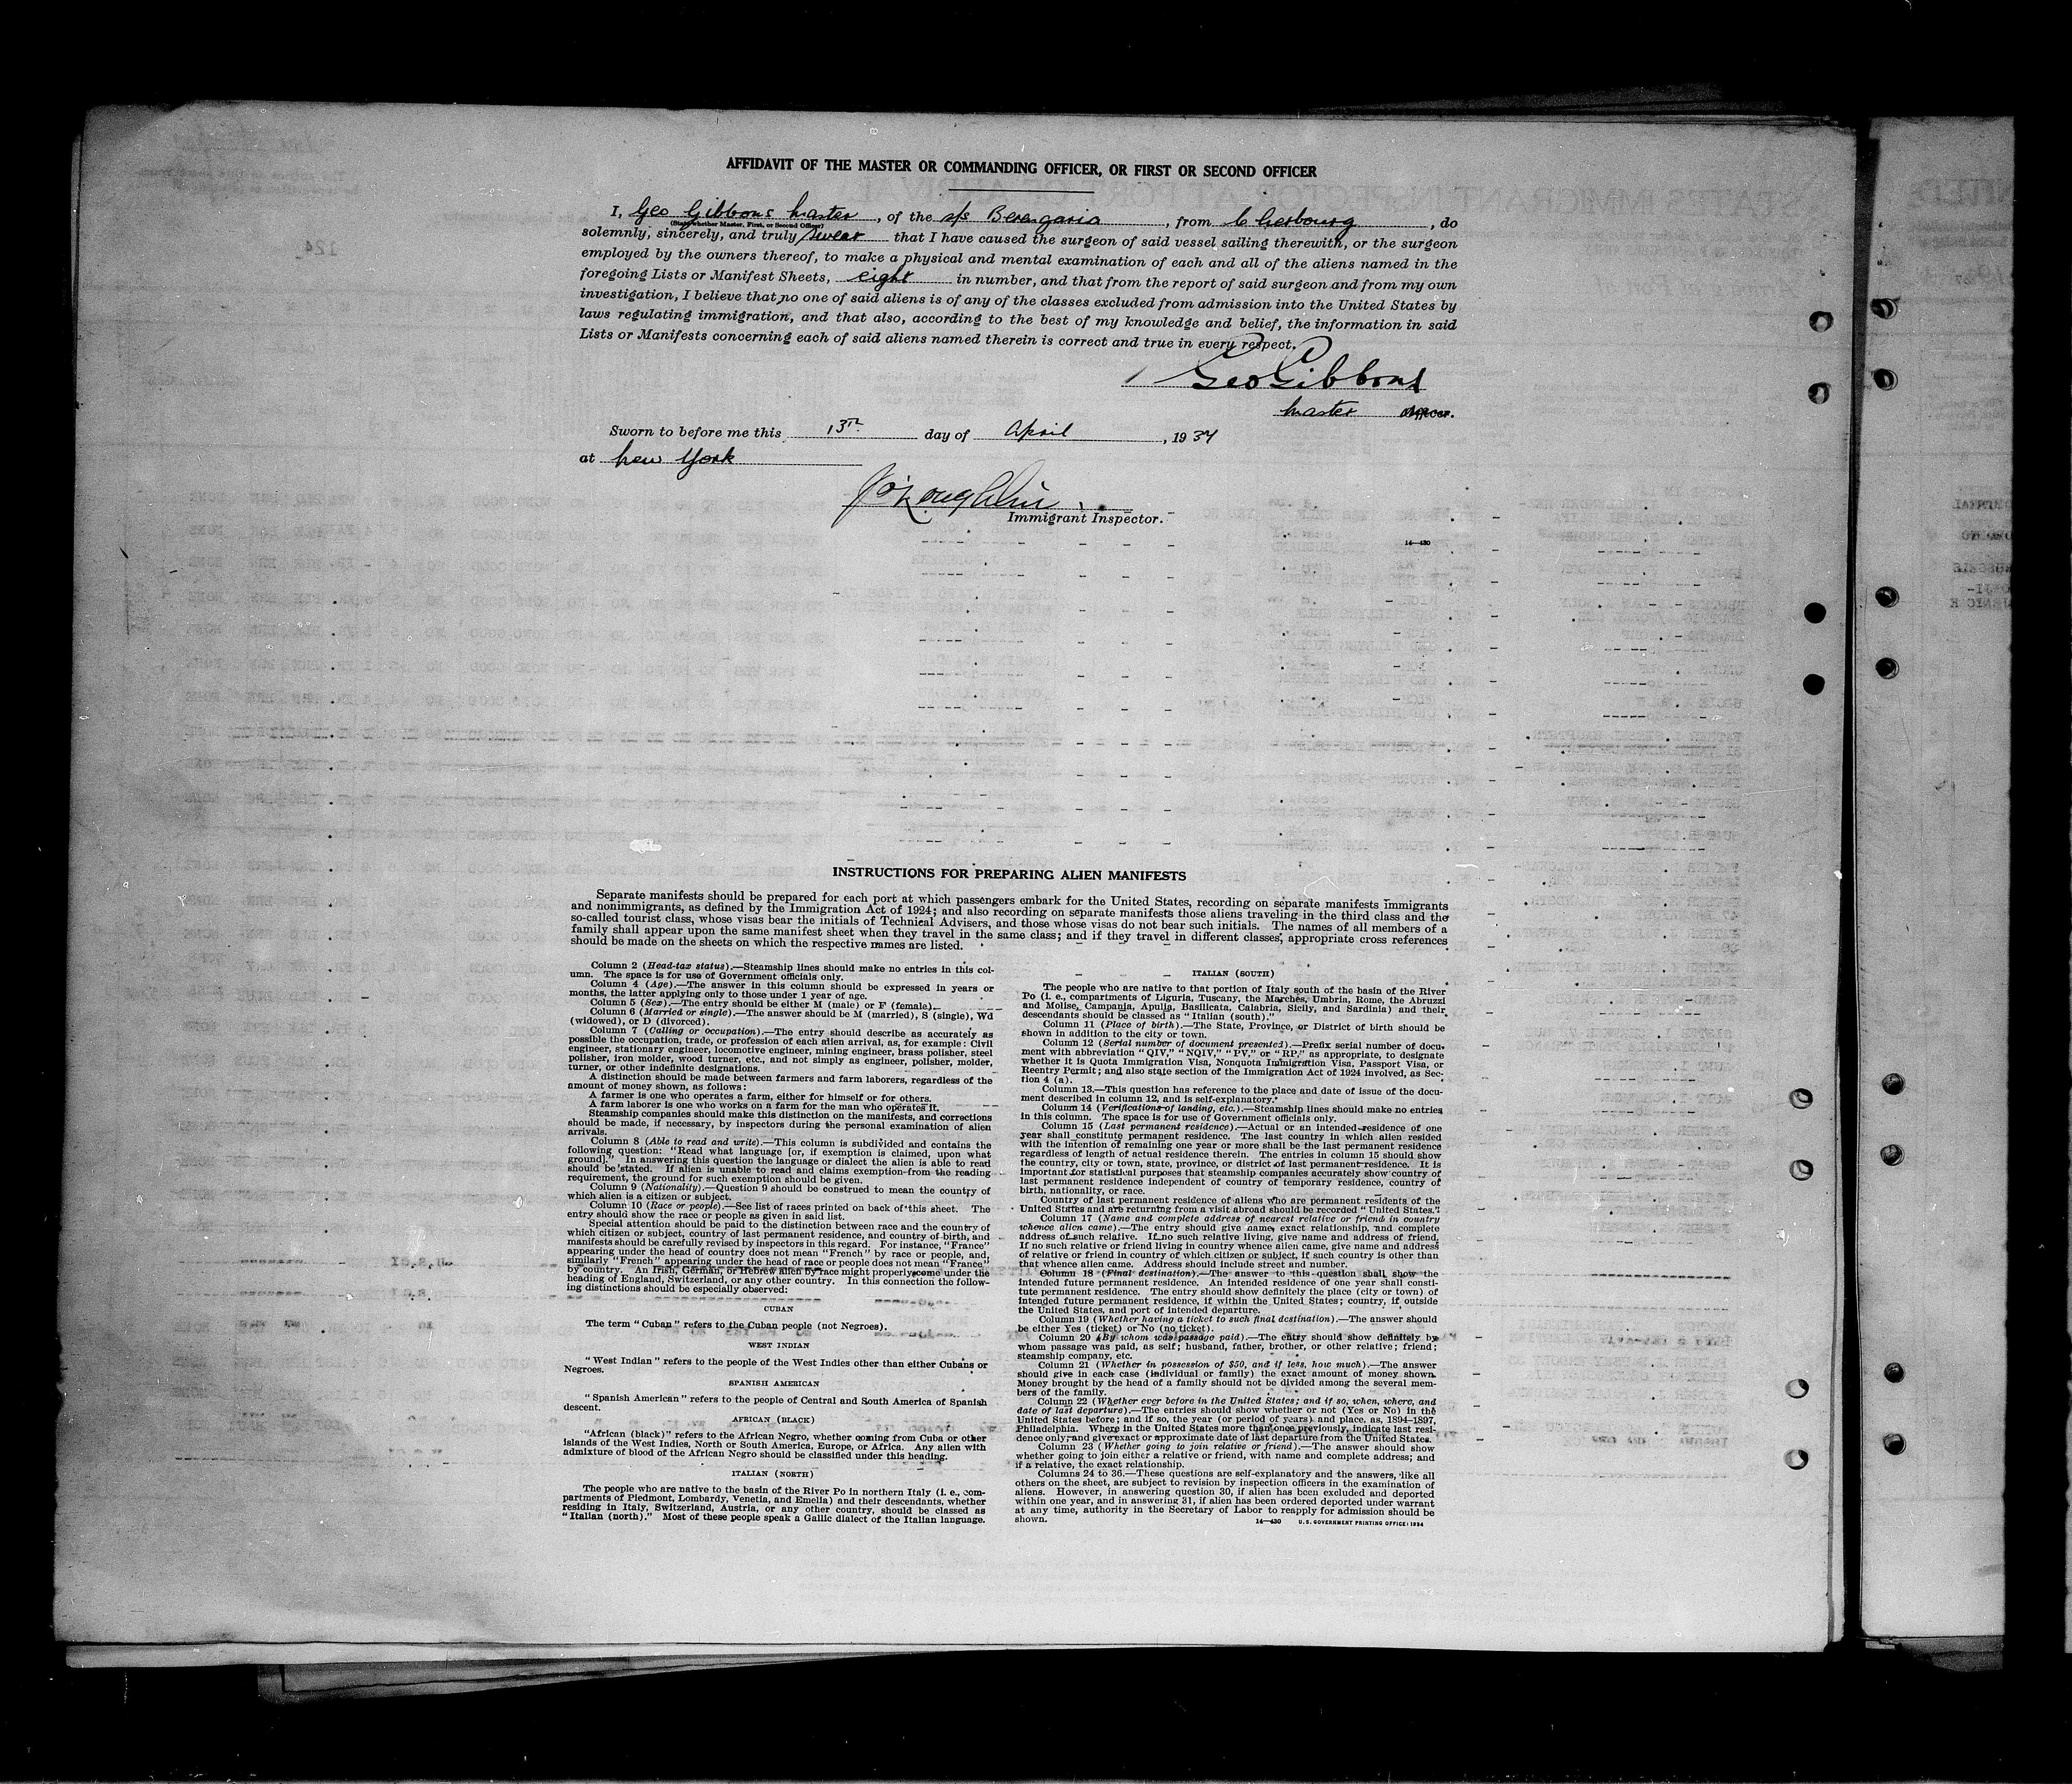 AFFIDAVIT OF THE MASTER OR COMMANDING OFFICER, OR FIRST OR SECOND OFFICER
I, Geo Gibbons Master, of the s/s Berengaria, from Cherbourg, do
(State whether Master, First, or Second Officer)
solemnly, sincerely, and truly swear that I have caused the surgeon of said vessel sailing therewith, or the surgeon
employed by the owners thereof, to make a physical and mental examination of each and all of the aliens named in the
foregoing Lists or Manifest Sheets, eight in number, and that from the report of said surgeon and from my own
investigation, I believe that no one of said aliens is of any of the classes excluded from admission into the United States by
laws regulating immigration, and that also, according to the best of my knowledge and belief, the information in said
Lists or Manifests concerning each of said aliens named therein is correct and true in every respect.
Geo Gibbons
Master Officer.
Sworn to before me this 13th day of April, 1937
at New York
Immigrant Inspector.
14—430
INSTRUCTIONS FOR PREPARING ALIEN MANIFESTS
Separate manifests should be prepared for each port at which passengers embark for the United States, recording on separate manifests immigrants
and nonimmigrants, as defined by the Immigration Act of 1924; and also recording on separate manifests those aliens traveling in the third class and the
so-called tourist class, whose visas bear the initials of Technical Advisers, and those whose visas do not bear such initials. The names of all members of a
family shall appear upon the same manifest sheet when they travel in the same class; and if they travel in different classes, appropriate cross references
should be made on the sheets on which the respective names are listed.
Column 2 (Head-tax status).—Steamship lines should make no entries in this col-
umn. The space is for use of Government officials only.
Column 4 (Age).—The answer in this column should be expressed in years or
months, the latter applying only to those under 1 year of age.
Column 5 (Sex).—The entry should be either M (male) or F (female).
Column 6 (Married or single).—The answer should be M (married), S (single), Wd
(widowed), or D (divorced).
Column 7 (Calling or occupation).—The entry should describe as accurately as
possible the occupation, trade, or profession of each alien arrival, as, for example: Civil
engineer, stationary engineer, locomotive engineer, mining engineer, brass polisher, steel
polisher, iron molder, wood turner, etc., and not simply as engineer, polisher, molder,
turner, or other indefinite designations.
A distinction should be made between farmers and farm laborers, regardless of the
amount of money shown, as follows:
A farmer is one who operates a farm, either for himself or for others.
A farm laborer is one who works on a farm for the man who operates it.
Steamship companies should make this distinction on the manifests, and corrections
should be made, if necessary, by inspectors during the personal examination of alien
arrivals.
Column 8 (Able to read and write).—This column is subdivided and contains the
following question: "Read what language [or, if exemption is claimed, upon what
ground]." In answering this question the language or dialect the alien is able to read
should be stated. If alien is unable to read and claims exemption from the reading
requirement, the ground for such exemption should be given.
Column 9 (Nationality).—Question 9 should be construed to mean the country of
which alien is a citizen or subject.
Column 10 (Race or people).—See list of races printed on back of this sheet. The
entry should show the race or people as given in said list.
Special attention should be paid to the distinction between race and the country of
which citizen or subject, country of last permanent residence, and country of birth, and
manifests should be carefully revised by inspectors in this regard. For instance, "France"
appearing under the head of country does not mean "French" by race or people, and,
similarly "French" appearing under the head of race or people does not mean "France"
by country. An Irish, German, or Hebrew alien by race might properly come under the
heading of England, Switzerland, or any other country. In this connection the follow-
ing distinctions should be especially observed:
CUBAN
The term "Cuban" refers to the Cuban people (not Negroes).
WEST INDIAN
"West Indian" refers to the people of the West Indies other than either Cubans or
Negroes.
SPANISH AMERICAN
"Spanish American" refers to the people of Central and South America of Spanish
descent.
AFRICAN (BLACK)
"African (black)" refers to the African Negro, whether coming from Cuba or other
islands of the West Indies, North or South America, Europe, or Africa. Any alien with
admixture of blood of the African Negro should be classified under this heading.
ITALIAN (NORTH)
The people who are native to the basin of the River Po in northern Italy (i. e., com-
partments of Piedmont, Lombardy, Venetia, and Emelia) and their descendants, whether
residing in Italy, Switzerland, Austria, or any other country, should be classed as
"Italian (north)." Most of these people speak a Gallic dialect of the Italian language.
ITALIAN (SOUTH)
The people who are native to that portion of Italy south of the basin of the River
Po (i. e., compartments of Liguria, Tuscany, the Marches, Umbria, Rome, the Abruzzi
and Molise, Campania, Apulia, Basilicata, Calabria, Sicily, and Sardinia) and their
descendants should be classed as "Italian (south)."
Column 11 (Place of birth).—The State, Province, or District of birth should be
shown in addition to the city or town.
Column 12 (Serial number of document presented).—Prefix serial number of docu-
ment with abbreviation "QIV," "NQIV," "PV," or "RP," as appropriate, to designate
whether it is Quota Immigration Visa, Nonquota Immigration Visa, Passport Visa, or
Reentry Permit; and also state section of the Immigration Act of 1924 involved, as Sec-
tion 4 (a).
Column 13.—This question has reference to the place and date of issue of the docu-
ment described in column 12, and is self-explanatory.
Column 14 (Verifications of landing, etc.).—Steamship lines should make no entries
in this column. The space is for use of Government officials only.
Column 15 (Last permanent residence).—Actual or an intended residence of one
year shall constitute permanent residence. The last country in which alien resided
with the intention of remaining one year or more shall be the last permanent residence
regardless of length of actual residence therein. The entries in column 15 should show
the country, city or town, state, province, or district of last permanent residence. It is
important for statistical purposes that steamship companies accurately show country of
last permanent residence independent of country of temporary residence, country of
birth, nationality, or race.
Country of last permanent residence of aliens who are permanent residents of the
United States and are returning from a visit abroad should be recorded "United States."
Column 17 (Name and complete address of nearest relative or friend in country
whence alien came).—The entry should give name, exact relationship, and complete
address of such relative. If no such relative living, give name and address of friend.
If no such relative or friend living in country whence alien came, give name and address
of relative or friend in country of which citizen or subject, if such country is other than
that whence alien came. Address should include street and number.
Column 18 (Final destination).—The answer to this question shall show the
intended future permanent residence. An intended residence of one year shall consti-
tute permanent residence. The entry should show definitely the place (city or town) of
intended future permanent residence, if within the United States; country, if outside
the United States, and port of intended departure.
Column 19 (Whether having a ticket to such final destination).—The answer should
be either Yes (ticket) or No (no ticket).
Column 20 (By whom was passage paid).—The entry should show definitely by
whom passage was paid, as self; husband, father, brother, or other relative; friend;
steamship company, etc.
Column 21 (Whether in possession of $50, and if less, how much).—The answer
should give in each case (individual or family) the exact amount of money shown.
Money brought by the head of a family should not be divided among the several mem-
bers of the family.
Column 22 (Whether ever before in the United States; and if so, when, where, and
date of last departure).—The entries should show whether or not (Yes or No) in the
United States before; and if so, the year (or period of years) and place, as, 1894-1897,
Philadelphia. Where in the United States more than once previously, indicate last resi-
dence only, and give exact or approximate date of last departure from the United States.
Column 23 (Whether going to join relative or friend).—The answer should show
whether going to join either a relative or friend, with name and complete address; and
if a relative, the exact relationship.
Columns 24 to 36.—These questions are self-explanatory and the answers, like all
others on the sheet, are subject to revision by inspection officers in the examination of
aliens. However, in answering question 30, if alien has been excluded and deported
within one year, and in answering 31, if alien has been ordered deported under warrant
at any time, authority in the Secretary of Labor to reapply for admission should be
shown.
14—430 U. S. GOVERNMENT PRINTING OFFICE: 1934